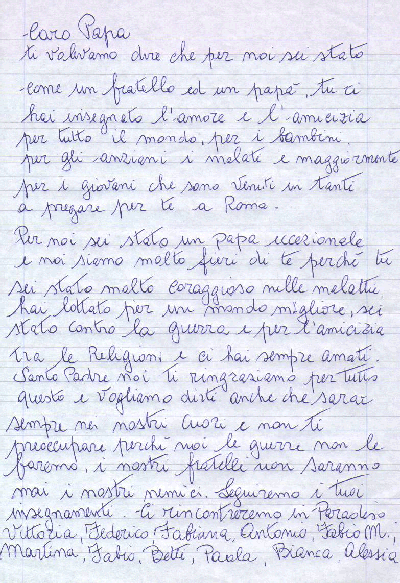 Caro Papa
ti volevamo dire che per noi sei stato
come un fratello ed un papà, tu ci
hai insegnato l'amore e l'amicizia
per tutto il mondo, per i bambini.
per gli anziani i malati e maggiormente
per i giovani che sono venuti in tanti
a pregare per te a Roma.
Per noi sei stato un papa eccezionale
e noi siamo molto fieri di te perché tu
sei stato molto coraggioso nelle malattie
hai lottato per un mondo migliore, sei
stato contro la guerra e per l'amicizia
tra le Religioni e ci hai sempre amati.
Santo Padre noi ti ringraziamo per tutto
questo e vogliamo dirti anche che sarai
sempre nei nostri cuori e non ti
preoccupare perché noi le guerre non le
faremo, i nostri fratelli non saranno
mai i nostri nemici. Seguiremo i tuoi
insegnamenti. Ci rincontreremo in Paradiso
Vittoria, Federico, Fabiana, Antonio, Fabio M.,
Martina, Fabio, Betti, Paola, Bianca Alessia